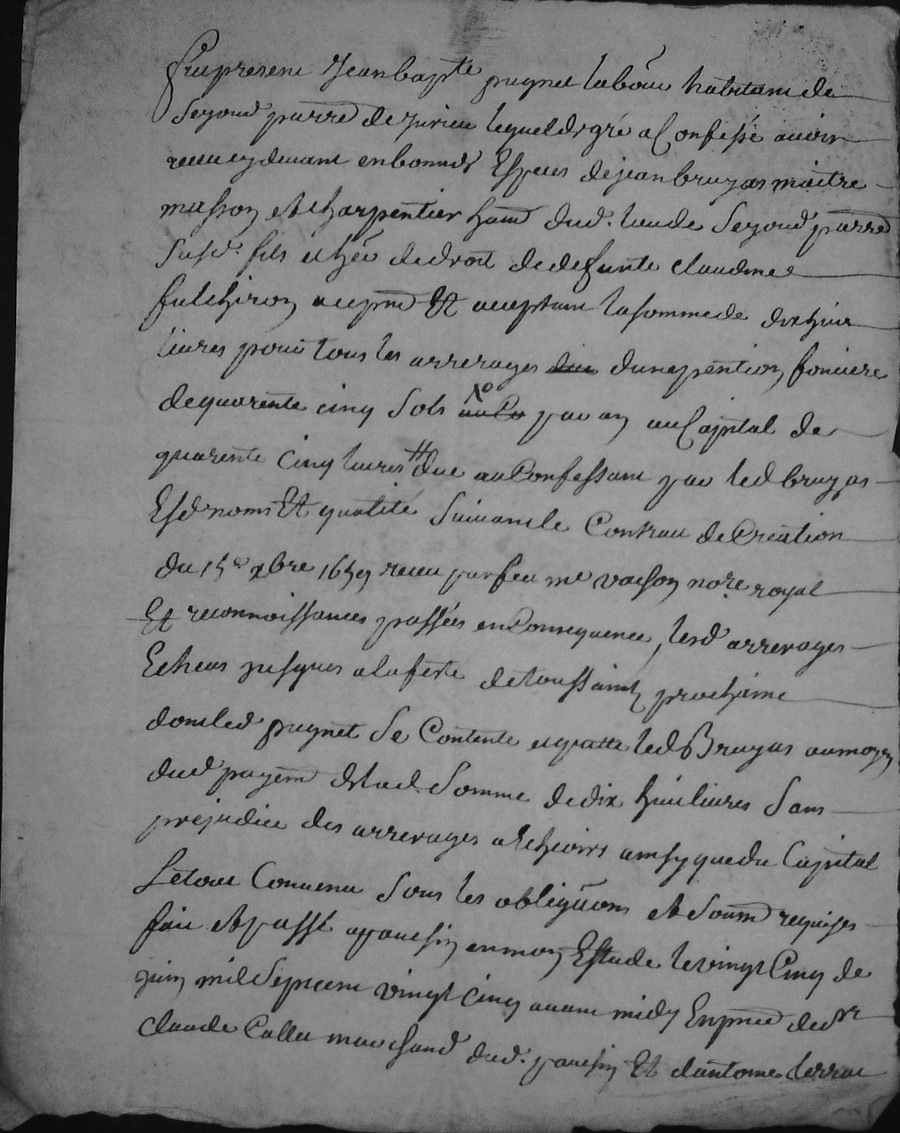 Fut present Jean bapte pugnet labór habitant de
Segond parre de Jurieu lequel de gré a Confessé avoir
receu cy devant en bonnes Especes de jean bruyas maitre
masson et charpentier hant dud. lieu de Segond parre
Susd. fils et her de droit de defunte claudine
fulchiron acpnt Et aceptant la somme de dix huit
livres pour tous les arrerages due dune pention fonciere
de quarente cinq sols par an au Capital de
quarente cinq livres tt due au Confessant par led bruyas
Esd noms Et qualité Suivant le Contrat de Creation
du 15e xbre 1659 receu par feu me no.re royal
Et reconnoissances passées en Consequence, lesd arrerages
Echeus jusques a la feste de toussaint prochaine
dont led pugnet Se Contente et quitte led Bruyas au moyen
dud payemt de lad Somme de dix huit livres Sans
prejudice des arrerages a Echeoirs ainsy que du Capital
Le tout Convenu sous les obligaóns et Soumd requises
fait et passé a paucsin en mon Estude le vingt Cinq de
juin mil Sept cent vingt cinq avant midy En pnce de sr
claude marchand dud. Et dantoine